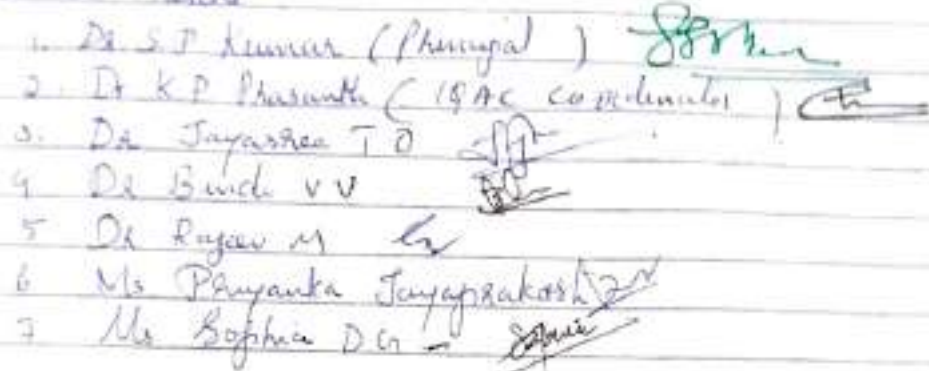 1. Dr S J Kumar (Principal)
2. Dr K P Prasanth (IQAC coordinator)
3. Dr Jayasree T O
4 Dr Bindu V V
5 Dr Rajeev M
6 Ms Priyanka Jayaprakash
7 Ms Sophia D G - Sophia